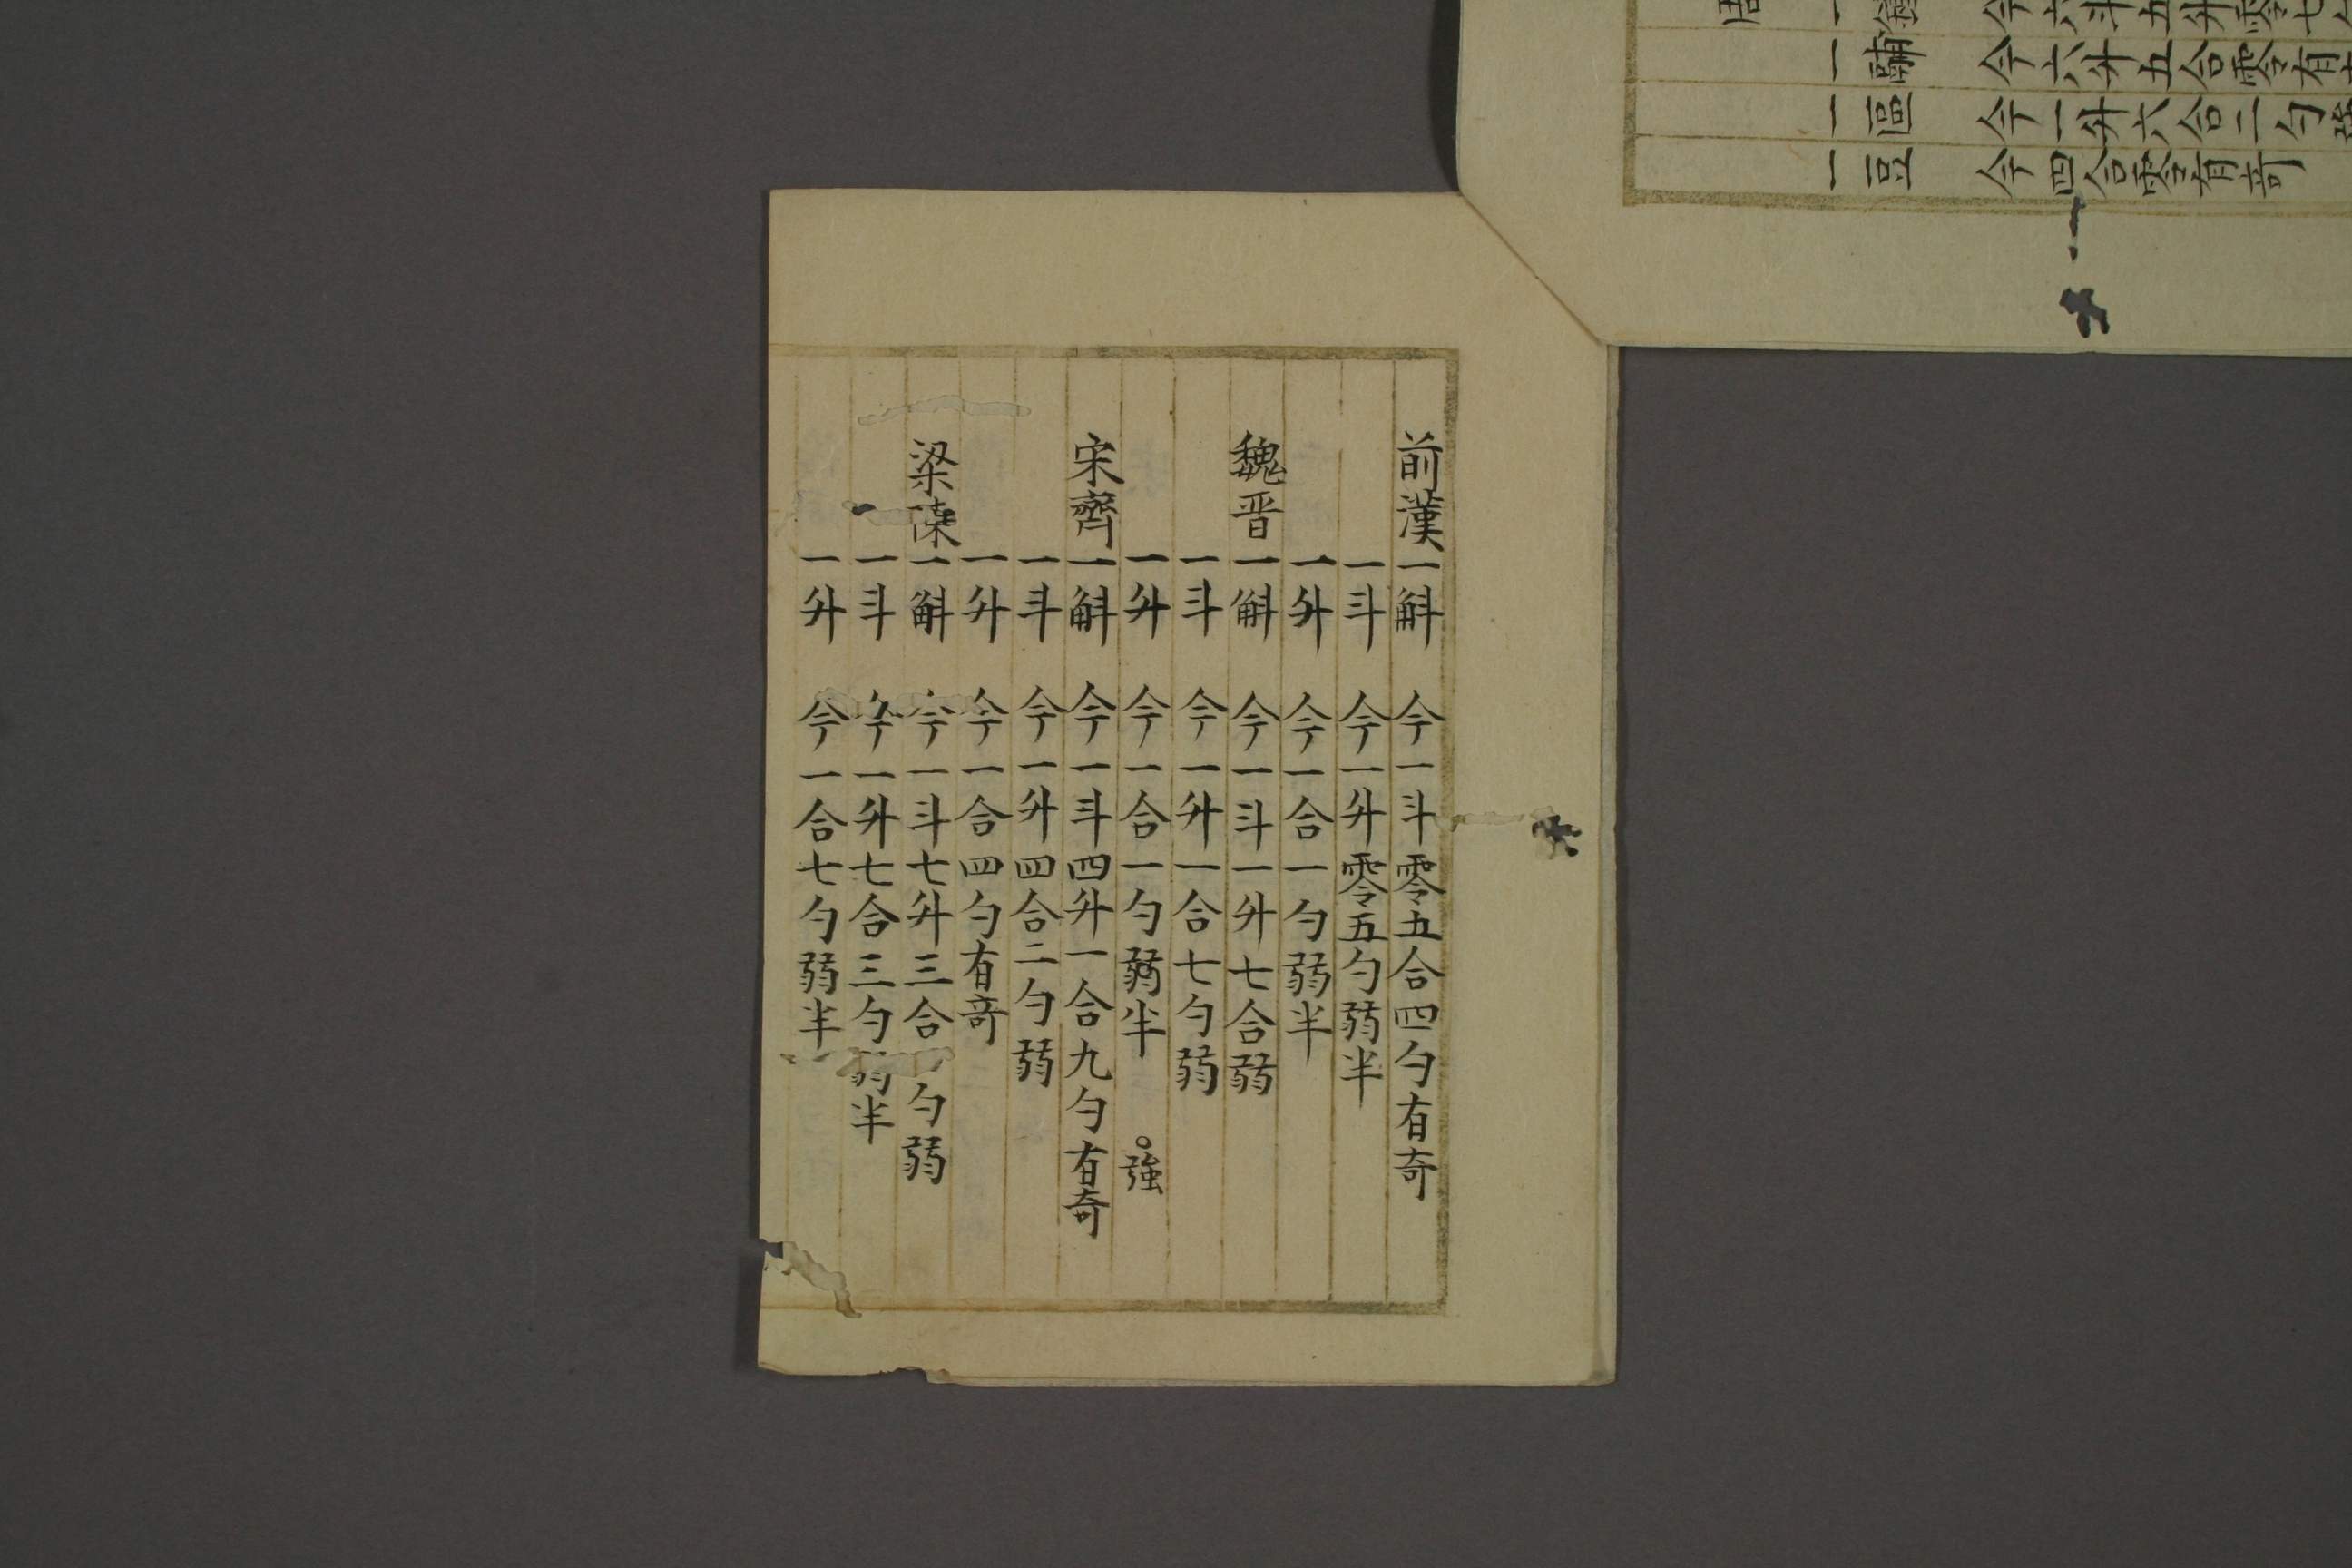 前漢一斛　今一斗零五合四勺有奇
一斗　今一升零五勺弱半
一升　今一合一勺弱半
魏晋一斛　今一斗一升七合弱
一斗　今一升一合七勺弱
一升　今一合一勺弱半　。強
宋齊一斛　今一斗四升一合九勺有奇
一斗　今一升四合二勺弱
一升　今一合四勺有奇
梁陳一斛　今一斗七升三合勺弱
一斗　今一升七合三勺弱半
一升　今一合七勺弱半
今六斗五升零七
一鬴　今六升五合零有
一區　今一升六合二勺強
一豆　今四合零有奇